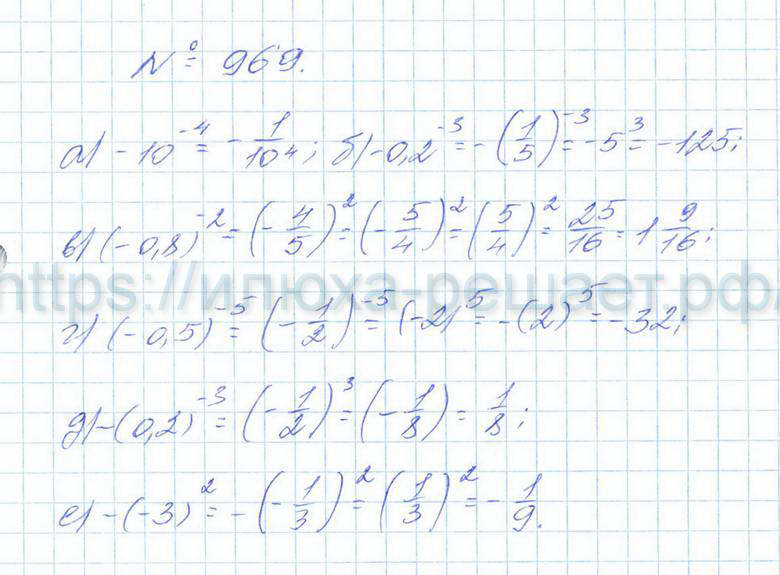 № 969.
а) -10^{-4} = -\frac{1}{10^4}; б) -0,2^{-3} = -(\frac{1}{5})^{-3} = -5^3 = -125;
в) (-0,8)^{-2} = (-\frac{4}{5})^2 = (-\frac{5}{4})^2 = (\frac{5}{4})^2 = \frac{25}{16} = 1\frac{9}{16};
https://илюха-решает.рф
г) (-0,5)^{-5} = (-\frac{1}{2})^{-5} = (-2)^5 = -(2)^5 = -32;
д) -(0,2)^{-3} = (-\frac{1}{2})^3 = (-\frac{1}{8}) = \frac{1}{8};
е) -(-3)^2 = -(-\frac{1}{3})^2 = (\frac{1}{3})^2 = -\frac{1}{9}.